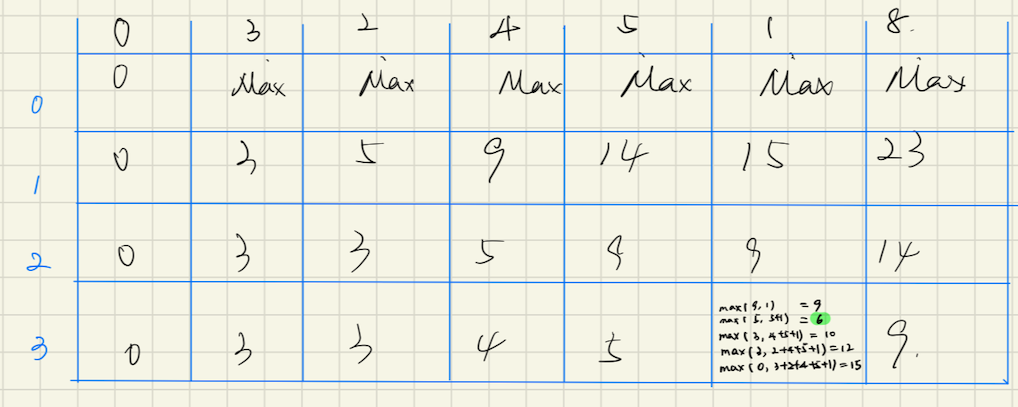 0 3 2 4 5 1 8.
0 0 Max Max Max Max Max Max
1 0 3 5 9 14 15 23
2 0 3 3 5 9 9 14
3 0 3 3 4 5 9.
max(9, 1) = 9
max(5, 5+1) = 6
max(3, 4+5+1) = 10
max(3, 2+4+5+1) = 12
max(0, 3+2+4+5+1) = 15